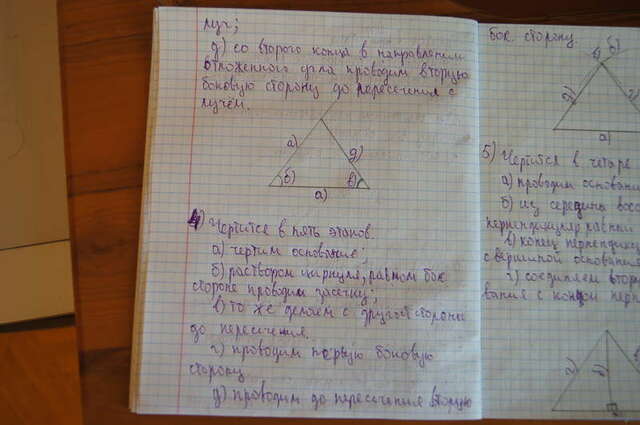 луч;
д) со второго конца в направлении
отложенного угла проводим вторую
боковую сторону до пересечения с
лучём.
а)
д)
б)
в)
а)
4) Чертится в пять этапов.
а) чертим основание;
б) раствором циркуля, равном бок.
стороне проводим засечку;
в) то же делаем с другой стороны
до пересечения.
г) проводим первую боковую
сторону
д) проводим до пересечения вторую
бок. сторону.
в)
б)
д)
г)
а)
5) Чертится в четыре
а) проводим основани
б) из середины восс
перпендикуляр равный
в) конец перпендик
с вершиной основания
г) соединяем втор
вания с концом перп
г)
б)